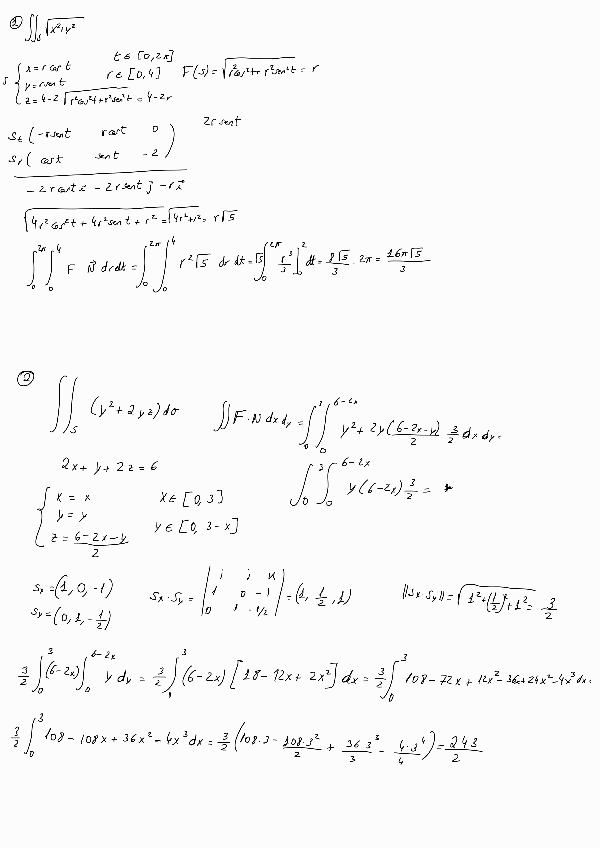 ① ∬_S √(x²+y²)
S { x = r cos t t ∈ [0, 2π]
y = r sen t r ∈ [0, 4] F(s) = √(r²cos²t + r²sen²t) = r
z = 4-2√(r²cos²t + r²sen²t) = 4-2r
S_t (-r sen t r cos t 0) 2r sen t
S_r (cos t sen t -2)
-2r cos t i - 2r sen t j - r k
√(4r²cos²t + 4r²sen t + r²) = √(4r²+r²) = r√5
∫₀^2π ∫₀^4 F N dr dt = ∫₀^2π ∫₀^4 r²√5 dr dt = √5 ∫₀^2π [r³/3]₀^2 dt = 8√5/3 · 2π = 16π√5/3
② ∬_S (y² + 2yz) dσ ∬ F·N dx dy = ∫₀^3 ∫₀^6-2x y² + 2y (6-2x-y)/2 3/2 dx dy =
2x + y + 2z = 6 ∫₀^3 ∫₀^6-2x y(6-2x) 3/2 =
{ x = x x ∈ [0, 3]
y = y y ∈ [0, 3-x]
z = (6-2x-y)/2
S_x = (1, 0, -1) S_x · S_y = | i j k | 1 0 -1 | 0 1 -1/2 | = (1, 1/2, 1) ||S_x·S_y|| = √(1² + (1/2)² + 1²) = 3/2
S_y = (0, 1, -1/2)
3/2 ∫₀^3 (6-2x) ∫₀^6-2x y dy = 3/2 ∫^3 (6-2x) [18 - 12x + 2x²] dx = 3/2 ∫₀^3 108 - 72x + 12x² - 36x + 24x² - 4x³ dx =
3/2 ∫₀^3 108 - 108x + 36x² - 4x³ dx = 3/2 (108·3 - 108·3²/2 + 36·3³/3 - 4·3⁴/4) = 243/2